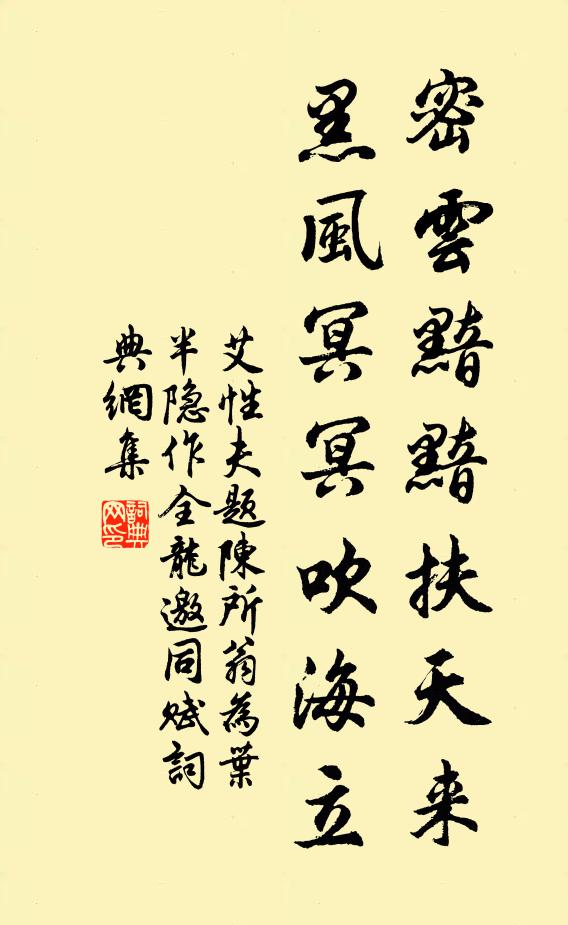 密雲黯黯扶天来
黑風冥冥吹海立
艾性夫題陳所翁為葉
半隐作全龍邀同赋詞
典網集
詞典網印